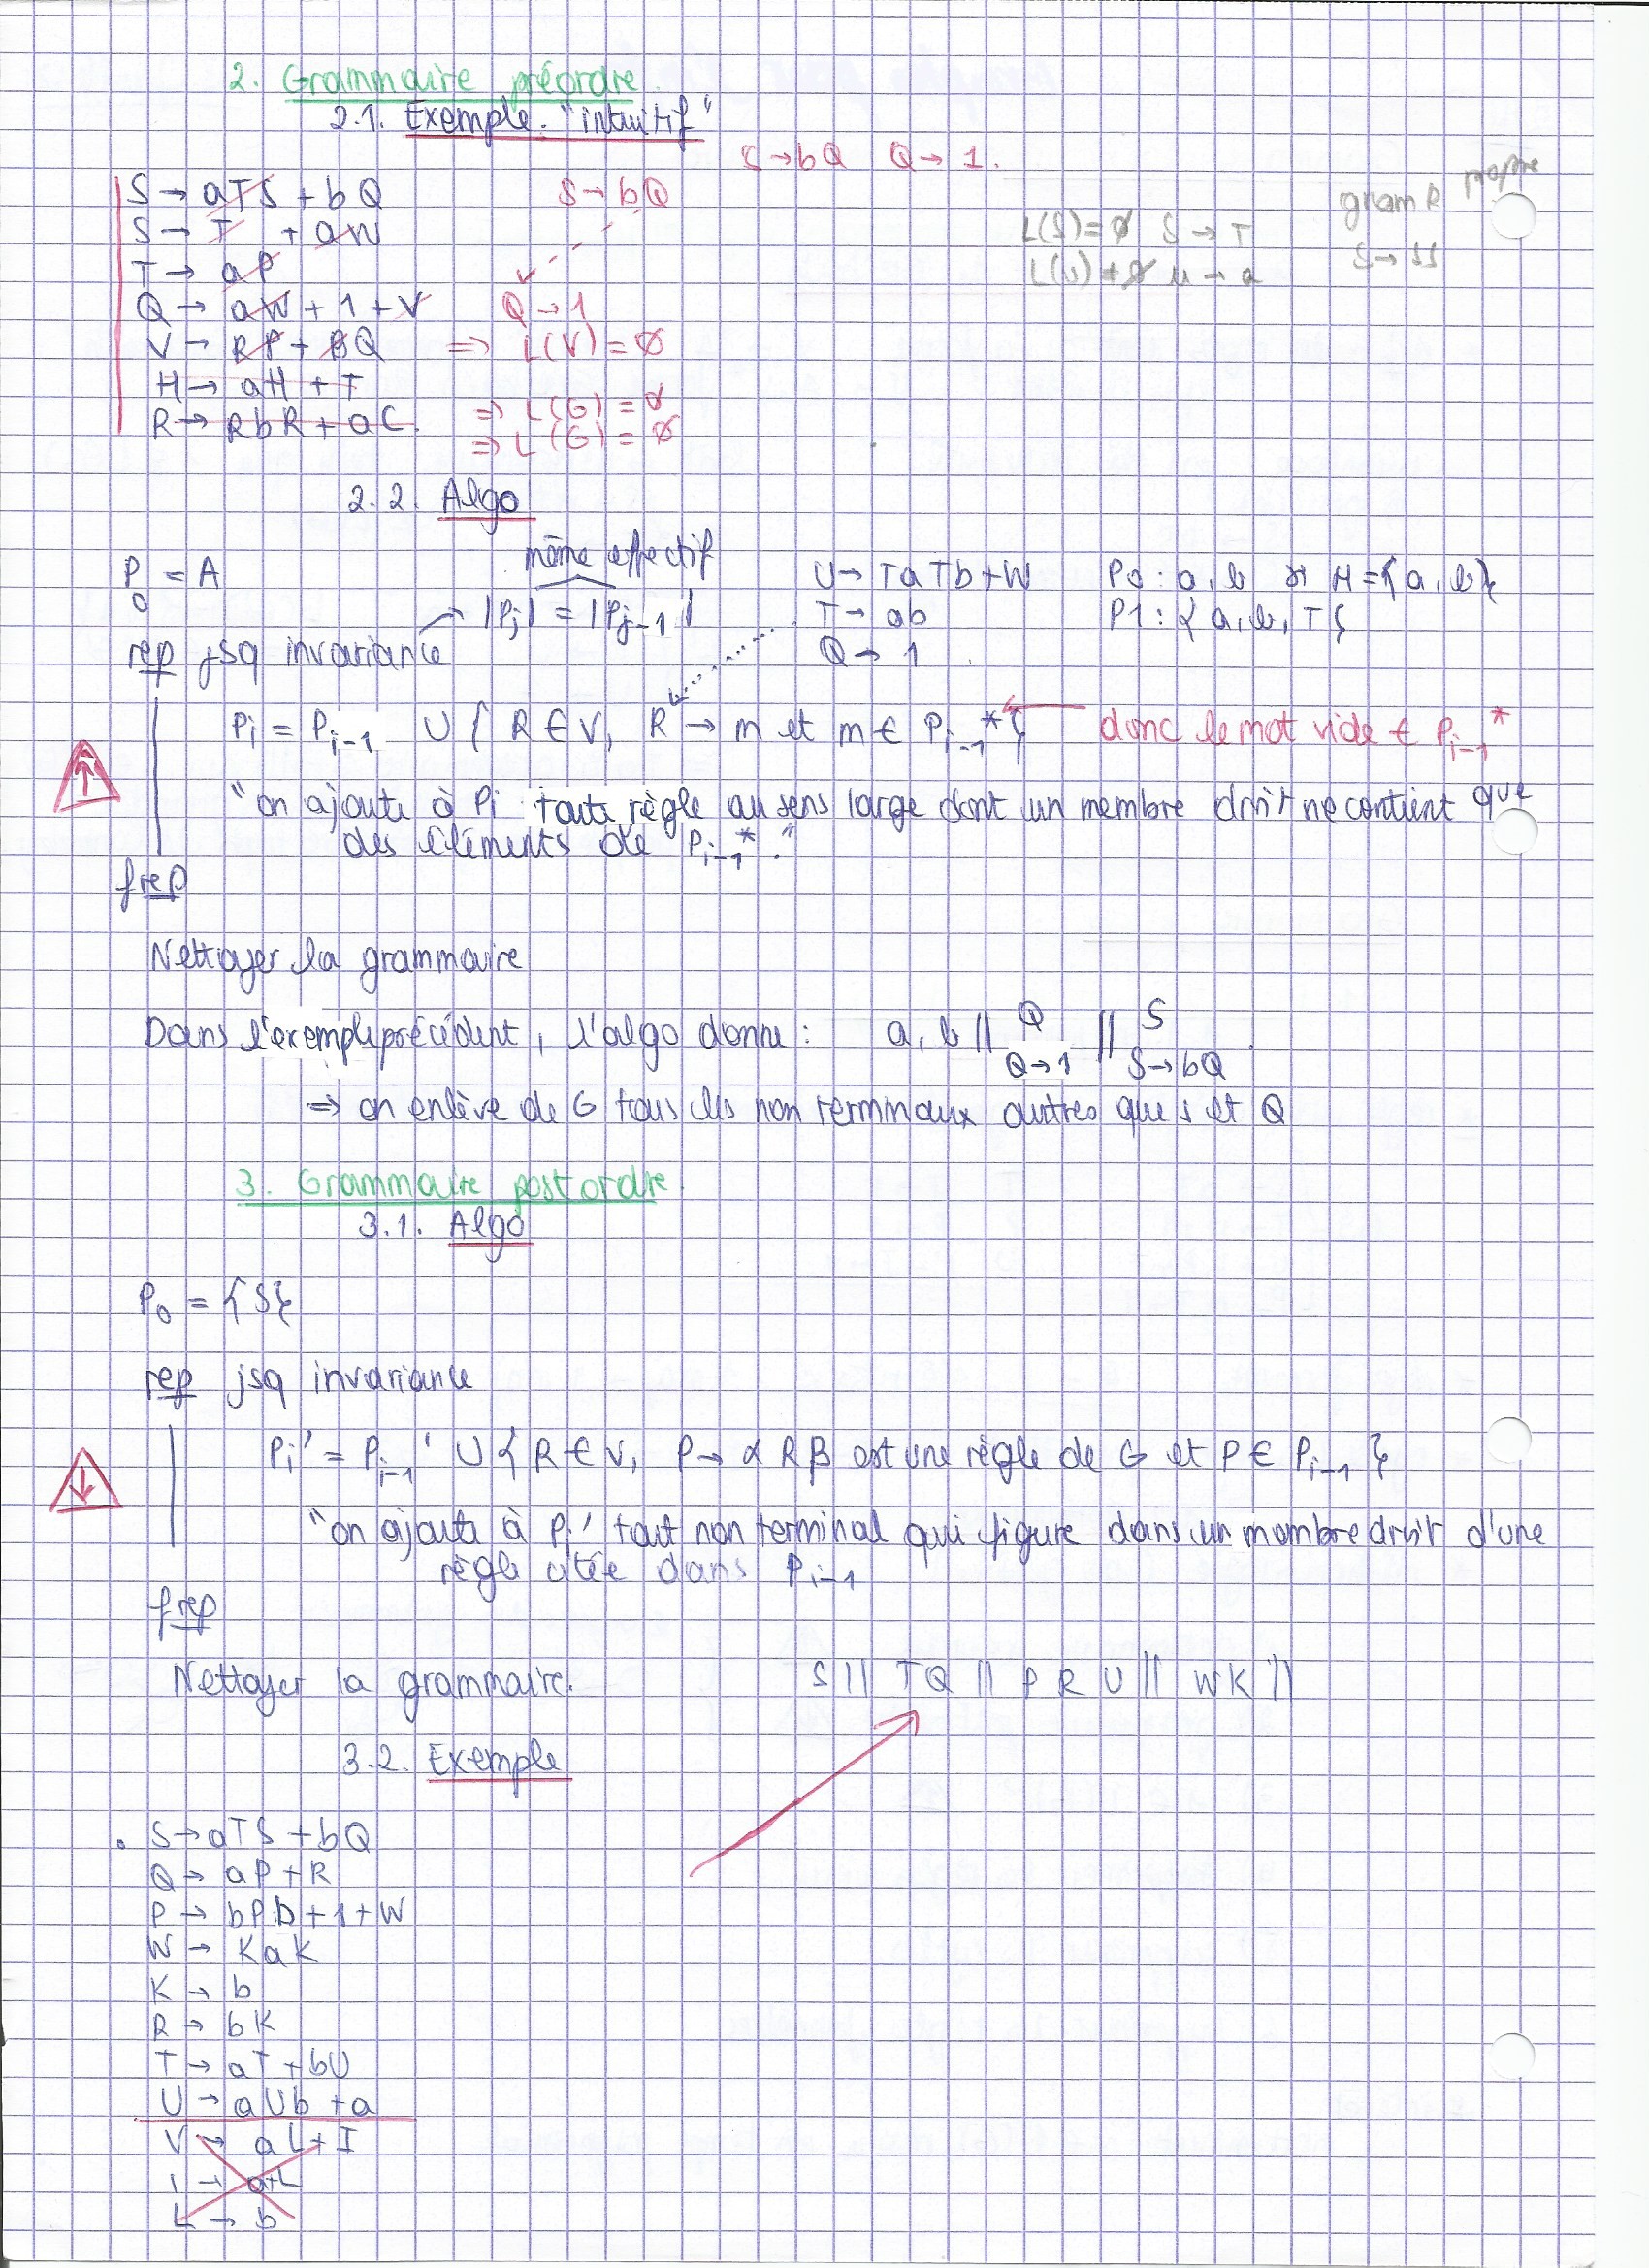 2. Grammaire préordre
2.1. Exemple "intuitif"
S → bQ Q → 1.
S → aTS + bQ S → bQ
S → T + aW
T → aP
Q → aW + 1 + V Q → 1
V → RP + BQ ⇒ L(V) = ∅
H → aH + T
R → RbR + aC. ⇒ L(G) = ∅
⇒ L(G) = ∅
gram R propre
L(S) = ∅ S → T S → SS
L(U) ≠ ∅ U → a
2.2. Algo
même effectif
P0 = A
|Pj| = |Pj-1|
rep jsq invariance
U → TaTb + W P0 : a, b si A = {a, b}
T → ab P1 : {a, b, T}
Q → 1
Pi = Pi-1 ∪ { R ∈ V, R → m et m ∈ Pi-1* } donc le mot vide ∈ Pi-1*
"on ajoute à Pi toute règle au sens large dont un membre droit ne contient que
des éléments de Pi-1*."
frep
Nettoyer la grammaire
Dans l'exemple précédent, l'algo donne : a, b || Q || S
Q → 1 S → bQ
⇒ on enlève de G tous les non terminaux autres que S et Q
3. Grammaire postordre
3.1. Algo
P0 = {S}
rep jsq invariance
Pi' = Pi-1' ∪ { R ∈ V, P → αRβ est une règle de G et P ∈ Pi-1 }
"on ajoute à Pi' tout non terminal qui figure dans un membre droit d'une
règle citée dans Pi-1
frep
Nettoyer la grammaire. S || TQ || P R U || WK ||
3.2. Exemple
. S → aTS + bQ
Q → aP + R
P → bPb + 1 + W
W → KaK
K → b
R → bK
T → aT + bU
U → aUb + a
V → aL + I
I → a+L
L → b